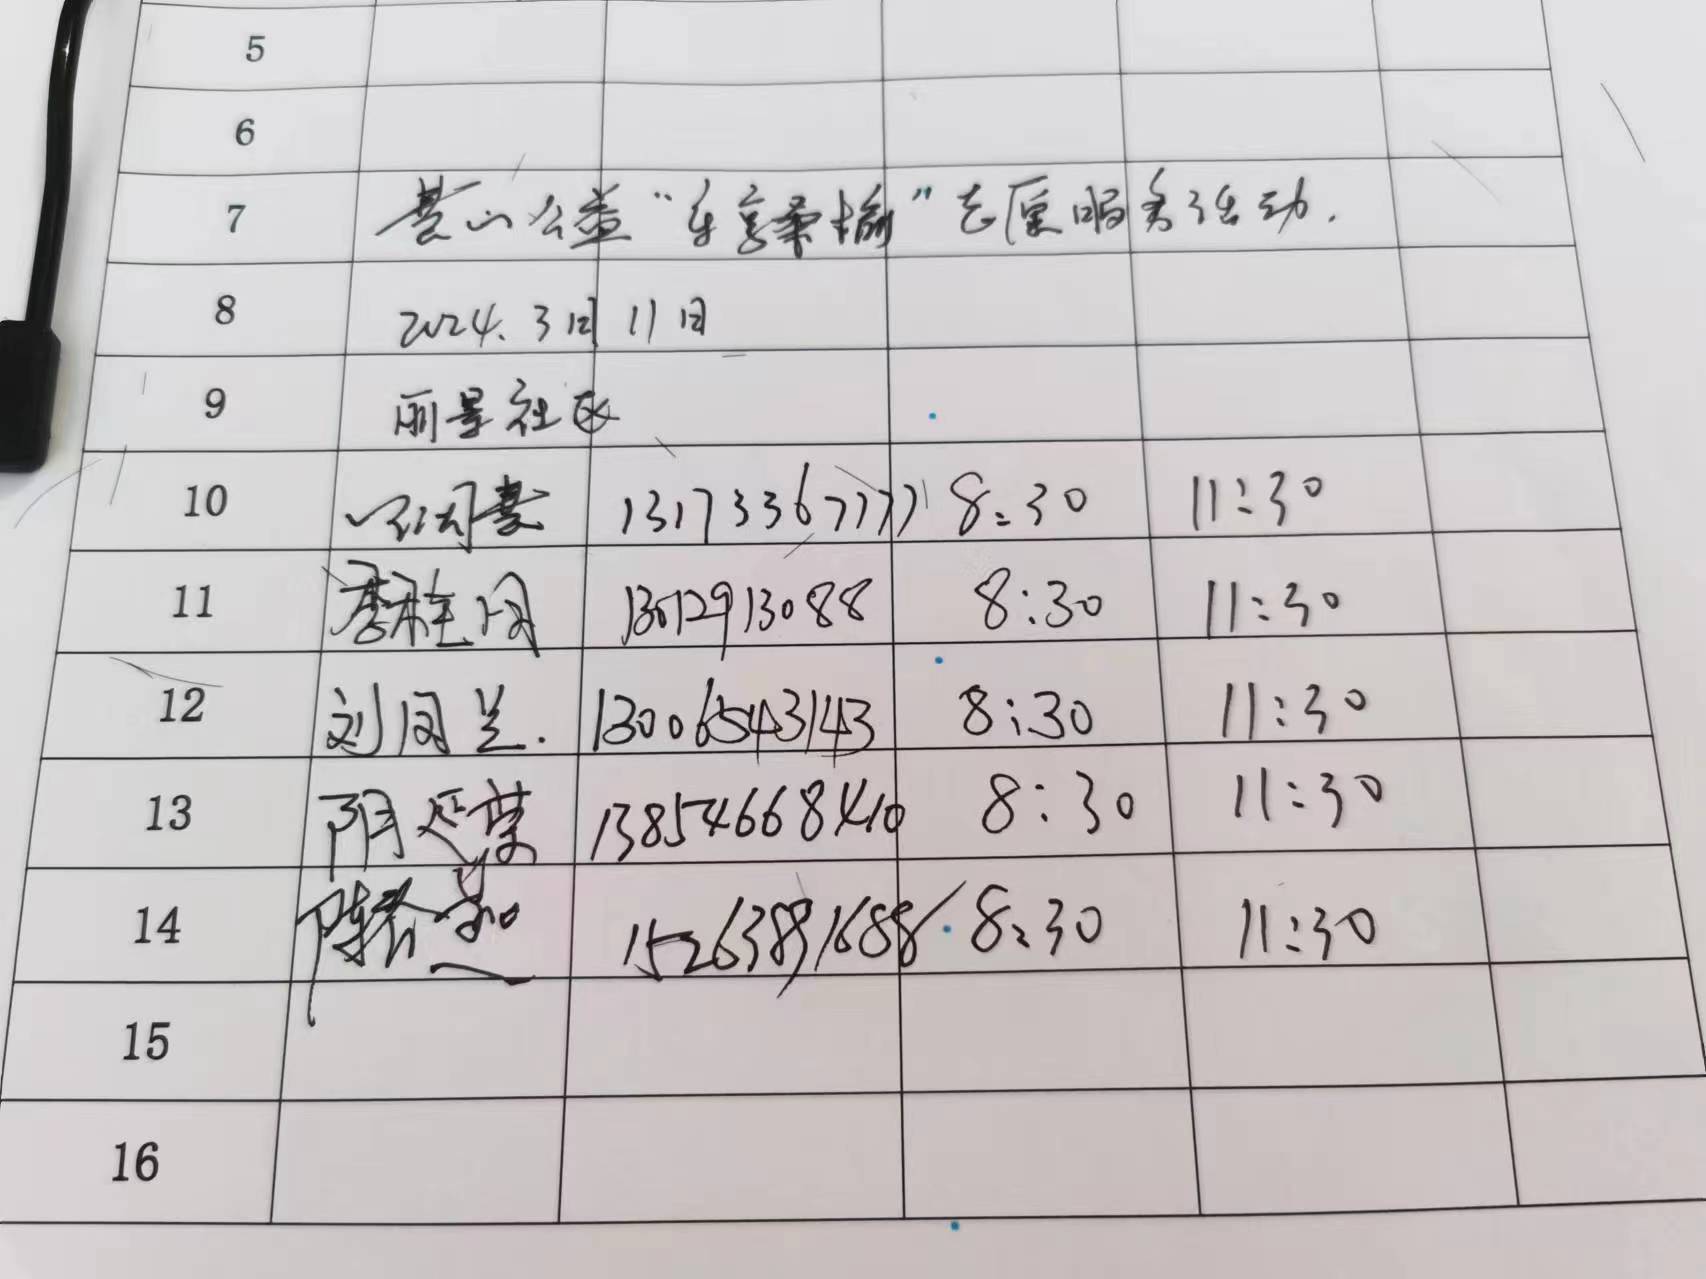 5
6
7 公益“乐享桑榆”志愿服务活动.
8 2024.3月11日
9 丽景社区
10 13173367777 8:30 11:30
11 李桂凤 13012913088 8:30 11:30
12 刘同兰. 13006543143 8:30 11:30
13 阴延荣 13854668410 8:30 11:30
14 15263891688 8:30 11:30
15
16